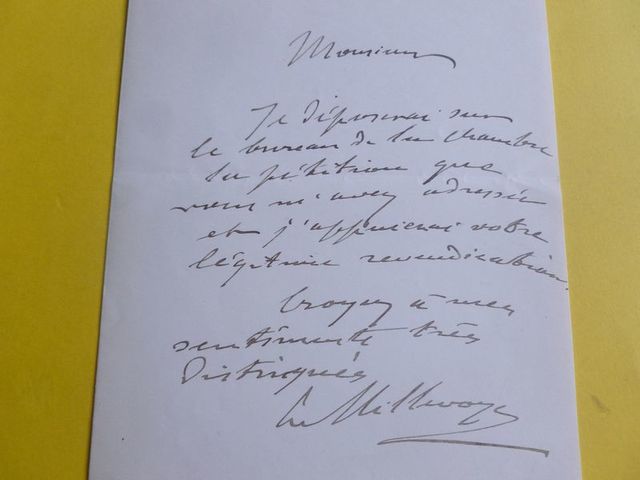 Monsieur
Je déposerai sur
le bureau de la Chambre
la pétition que
vous m'avez adressée
et j'appuierai votre
légitime revendication.
Croyez à mes
sentiments très
distingués
Millevoye